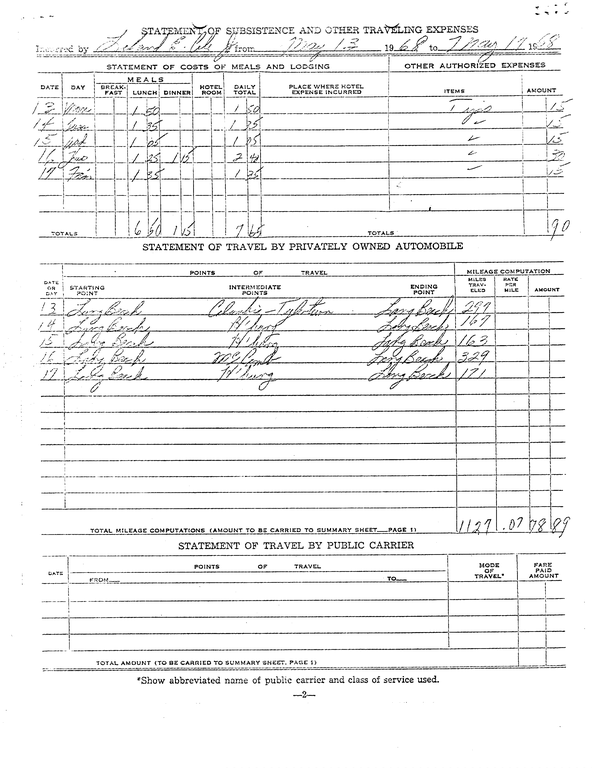 STATEMENT OF SUBSISTENCE AND OTHER TRAVELING EXPENSES
Incurred by from May 13 1968 to May 17 1968
STATEMENT OF COSTS OF MEALS AND LODGING OTHER AUTHORIZED EXPENSES
DATE DAY MEALS HOTEL ROOM DAILY TOTAL PLACE WHERE HOTEL EXPENSE INCURRED ITEMS AMOUNT
BREAK-FAST LUNCH DINNER
13 Mon 1 50 1 50 15
14 1 35 1 35 15
15 Wed 1 05 1 05 15
16 1 25 1 15 2 40
17 Fri 1 35 1 35 15
TOTALS 6 50 1 15 7 65 TOTALS 90
STATEMENT OF TRAVEL BY PRIVATELY OWNED AUTOMOBILE
POINTS OF TRAVEL MILEAGE COMPUTATION
DATE OR DAY STARTING POINT INTERMEDIATE POINTS ENDING POINT MILES TRAV-ELED RATE PER MILE AMOUNT
13 Long Beach Columbia - Tylertown Long Beach 299
14 Long Beach H'burg Long Beach 167
15 Long Beach H'burg Long Beach 163
16 Long Beach McComb Long Beach 329
17 Long Beach H'burg Long Beach 171
TOTAL MILEAGE COMPUTATIONS (AMOUNT TO BE CARRIED TO SUMMARY SHEET PAGE 1) 1127 .07 78 89
STATEMENT OF TRAVEL BY PUBLIC CARRIER
DATE POINTS OF TRAVEL MODE OF TRAVEL* FARE PAID AMOUNT
FROM TO
TOTAL AMOUNT (TO BE CARRIED TO SUMMARY SHEET, PAGE 1)
*Show abbreviated name of public carrier and class of service used.
—2—